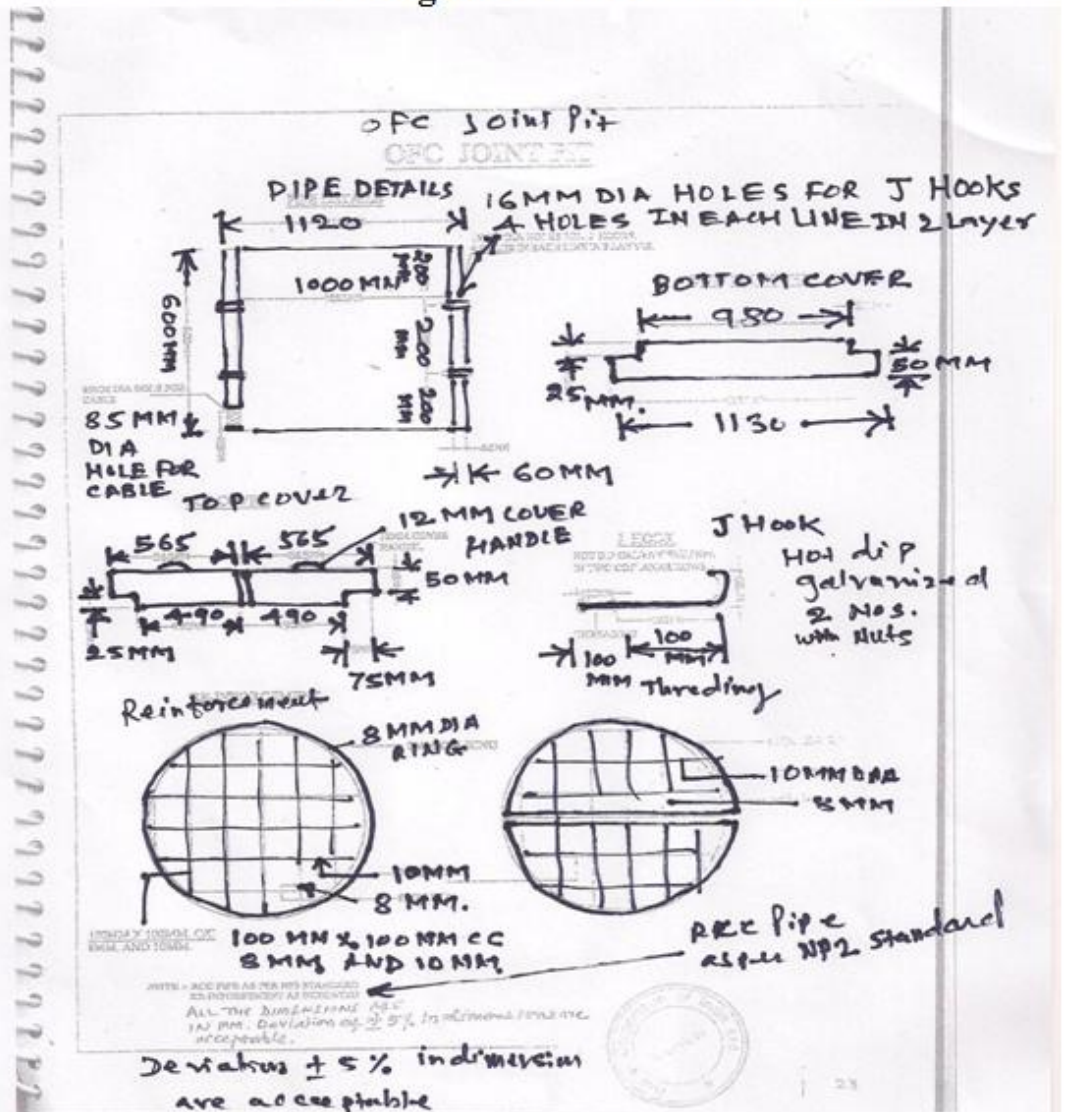 OFC Joint Pit
OFC JOINT PIT
PIPE DETAILS
16MM DIA HOLES FOR J HOOKS
4 HOLES IN EACH LINE IN 2 Layer
1120
1000 MM
600 MM
200 MM
200 MM
200 MM
BOTTOM COVER
980
50 MM
25 MM.
1130
85 MM
DIA
HOLE FOR
CABLE
60 MM
TOP COVER
12 MM COVER
HANDLE
565
565
50 MM
490
490
25 MM
75 MM
J Hook
J HOOK
Hot dip
galvanized
2 Nos.
with Nuts
100 MM
100 MM
Threding
Reinforcement
8 MM DIA
RING
10MM DIA
8 MM
10MM
8 MM.
100 MM X 100 MM CC
8 MM AND 10 MM
RCC Pipe
as per NP2 Standard
ALL THE DIMENSIONS ARE
IN MM. Deviation of ± 5% in dimensions are
acceptable.
Deviation ± 5% in dimension
are acceptable
23